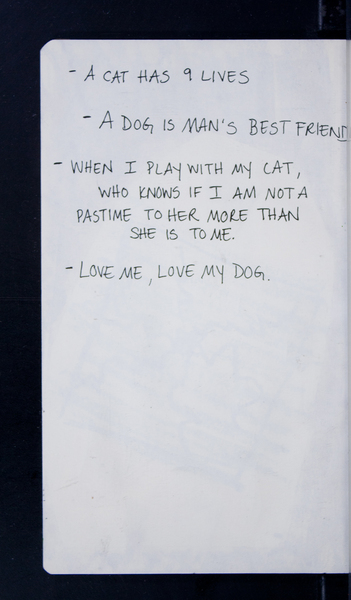 - A CAT HAS 9 LIVES
- A DOG IS MAN'S BEST FRIEND
- WHEN I PLAY WITH MY CAT,
WHO KNOWS IF I AM NOT A
PASTIME TO HER MORE THAN
SHE IS TO ME.
- LOVE ME, LOVE MY DOG.